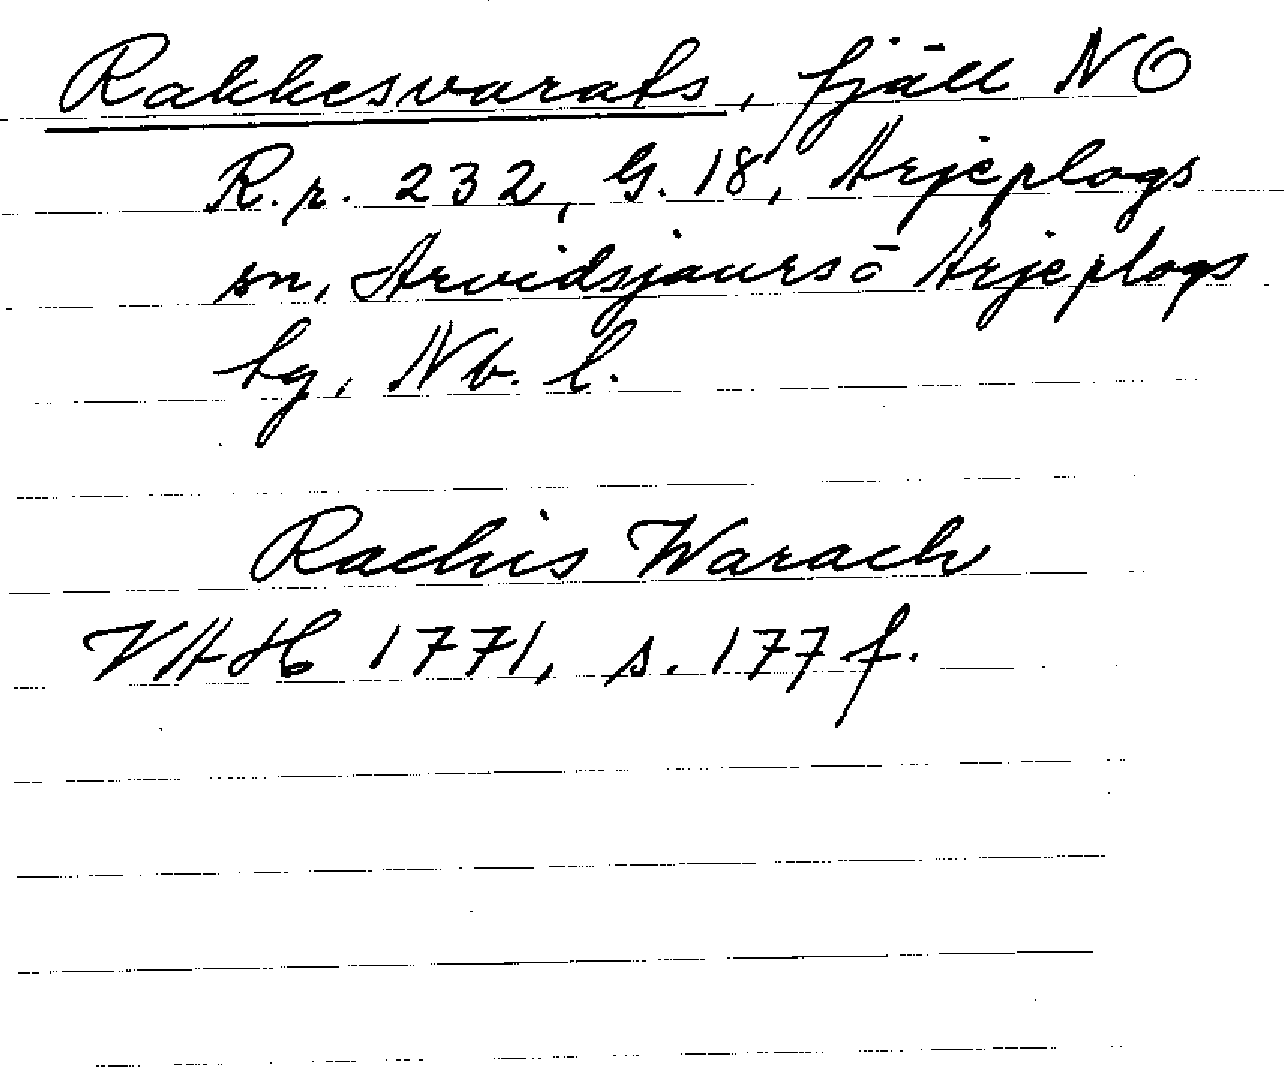 Rakkesvarats, fjäll NO
R.r. 232, G. 18, Arjeplogs
sn, Arvidsjaurs o Arjeplogs
tg, Nb. l.
Rachis Warach
VAH 1771, s. 177 f.